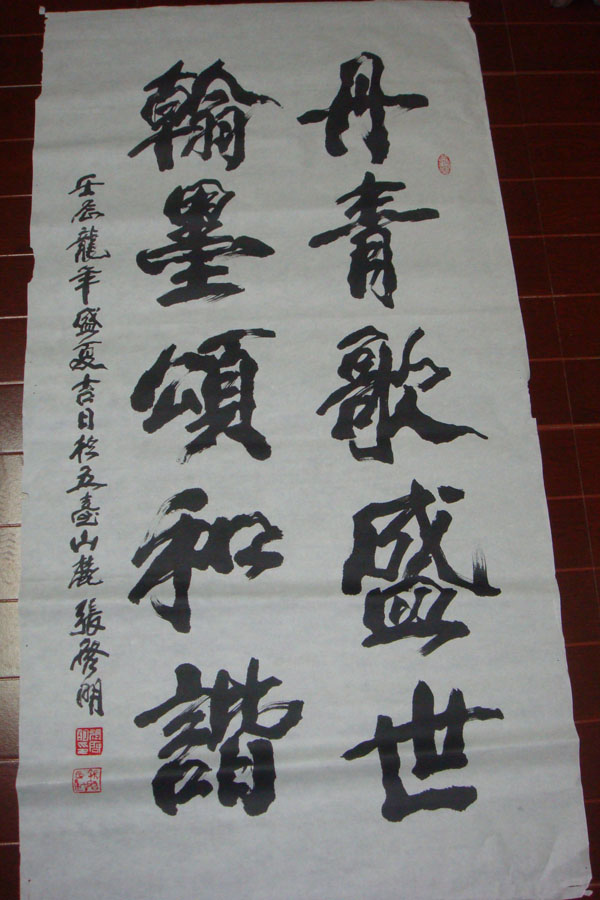 丹青歌盛世
翰墨頌和諧
壬辰龍年盛夏吉日於五臺山麓 張啓明